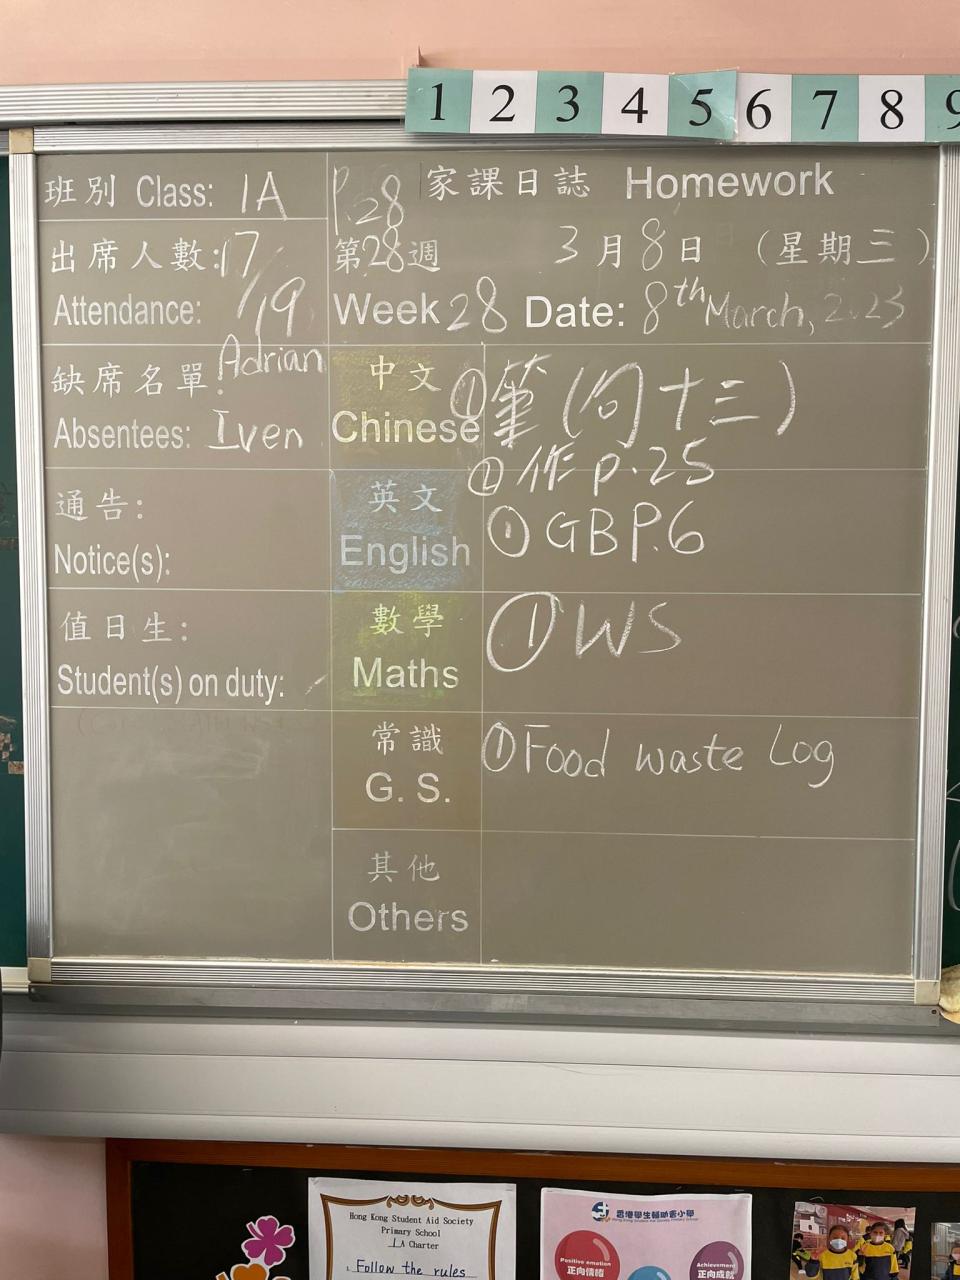 1 2 3 4 5 6 7 8 9
班別 Class: 1A
P.28 家課日誌 Homework
出席人數: 17/19
Attendance:
第28週 3月8日 (星期三)
Week 28 Date: 8th March, 2023
缺席名單: Adrian
Absentees: Iven
中文 ①筆(向十三)
Chinese
②作 P.25
通告:
Notice(s):
英文 ①GB P.6
English
值日生:
Student(s) on duty:
數學 ①WS
Maths
常識 ①Food waste Log
G. S.
其他
Others
Hong Kong Student Aid Society
Primary School
1A Charter
1. Follow the rules
香港學生輔助會小學
Hong Kong Student Aid Society Primary School
Positive emotion
正向情緒
Achievement
正向成就